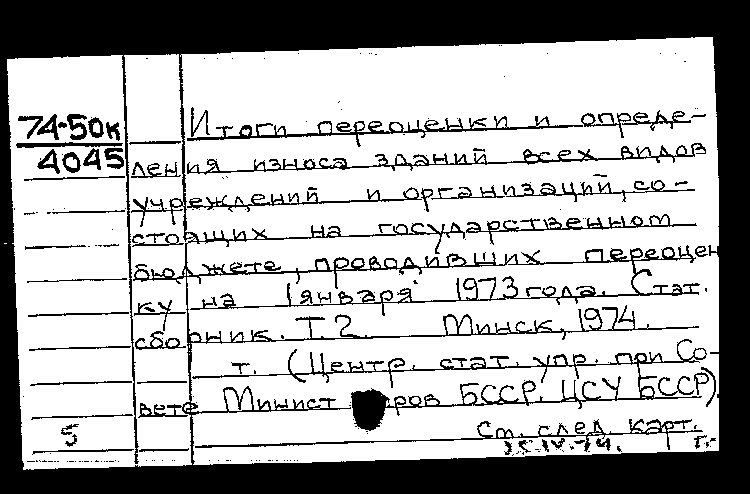 74-50к
4045
Итоги переоценки и опреде-
ления износа зданий всех видов
учреждений и организаций, со-
стоящих на государственном
бюджете, проводивших переоцен
ку на 1 января 1973 года. Стат.
сборник. Т. 2. Минск, 1974.
т. (Центр. стат. упр. при Со-
вете Минист ров БССР. ЦСУ БССР).
5
Ст. след. карт.
25.IV.74. Т.-